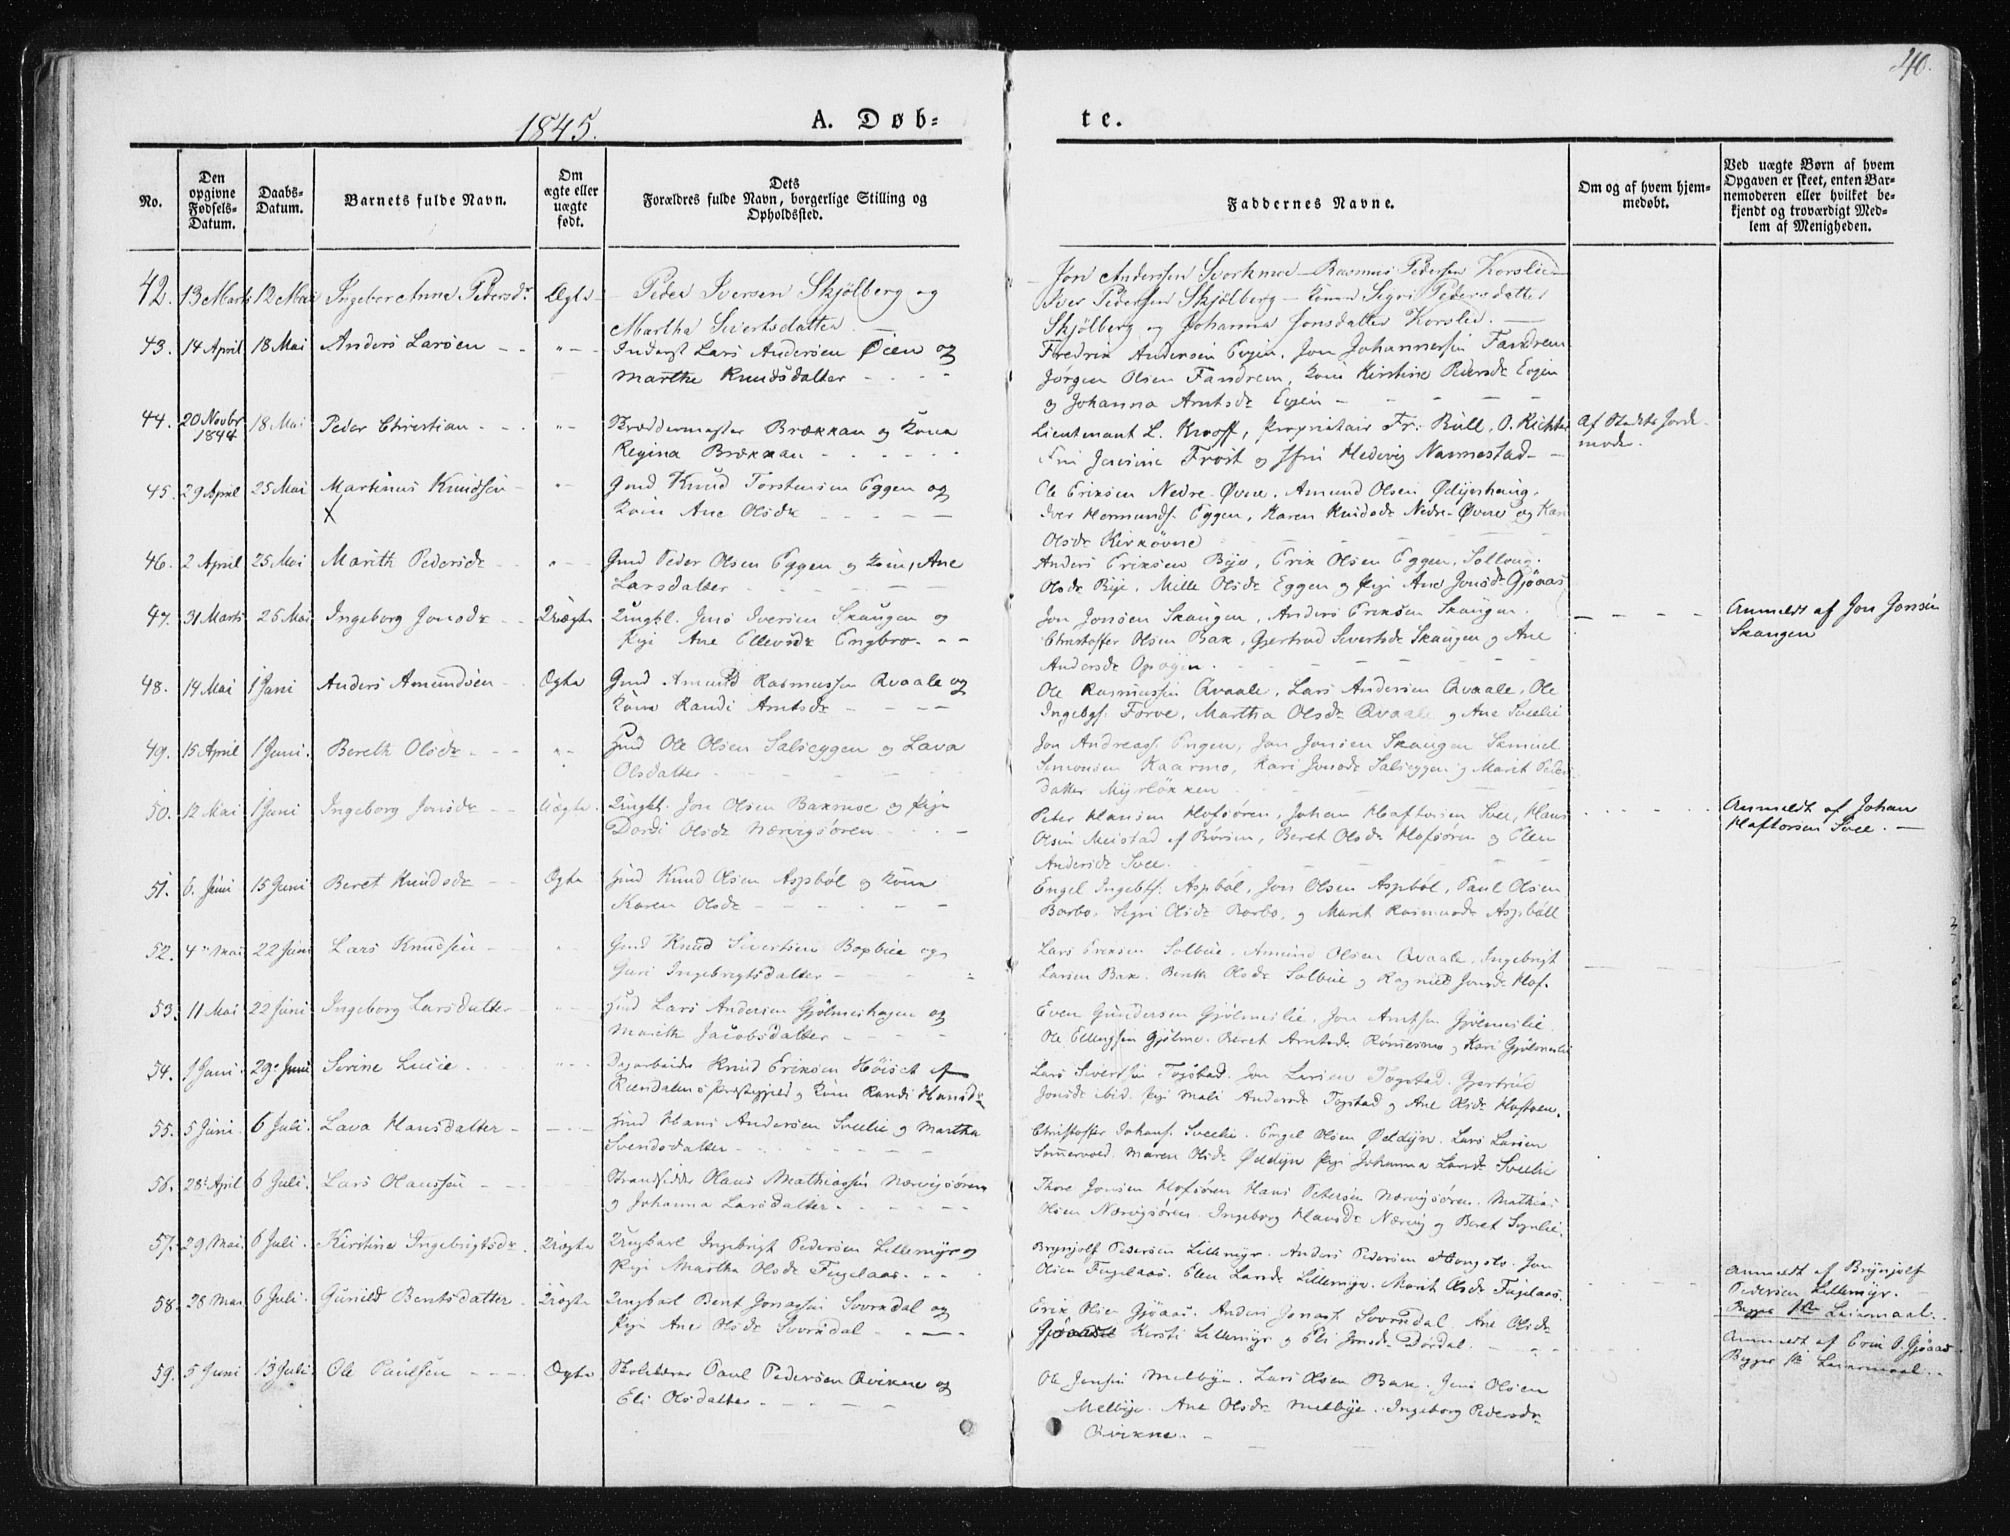 40.
1845.
A. Døb-
te.
No.
Den opgivne Fødsels-Datum.
Daabs-Datum.
Barnets fulde Navn.
Om ægte eller uægte født.
Dets Forældres fulde Navn, borgerlige Stilling og Opholdssted.
Faddernes Navne.
Om og af hvem hjem-medøbt.
Ved uægte Børn af hvem Opgaven er skeet, enten Bar-nemoderen eller hvilket be-kjendt og troværdigt Med-lem af Menigheden.
42. 13 Marts 12 Mai Ingebor Anne Pedersdr Ægte Peder Iversen Skjölberg og
Martha Sivertsdatter
Jon Anderssen Svorkmoe - Rasmus Pedersen Korslie
Iver Pedersen Skjölberg - Sigri Pedersdatter
Skjölberg og Johanna Jonsdatter Korslie.
43. 14 April 18 Mai Anders Larsen " Lars Andersen Öien og
Marthe Knudsdatter
Fredrik Andersen Evjen, Jon Johannessen Fandrem
Jørgen Olsen Fandrem, Kirstine Pedersdr Evjen
og Johanna Arntsdr Evjen
44. 20 Novbr 1844 18 Mai Peder Christian " Brækkan og Kone
Regina Brækkan
Lieutenant L. Knoff, Proprietair Fr. Bull, O. Richter
Frost og Hedevig Nannestad
Af Stedets Jorde-
moder.
45. 29 April 25 Mai Martinus Knudsen "
X
Gmd Knud Torstensen Eggen og
Kone Ane Olsdr
Ole Eriksen Nedre-Øvne, Amund Olsen
Iver Hermunds. Eggen, Karen Knudsdr Nedre-Øvne og Kari
Olsdr Kirkövne
46. 2 April 25 Mai Marith Pedersdr " Gmd Peder Olsen Eggen og Kone, Ane
Larsdatter
Anders Eriksen Bye, Erik Olsen Eggen, Sollaug
Olsdr Bye, Mille Olsdr Eggen og Pige Ane Jonsdr Gjöaas
47. 31 Marts 25 Mai Ingeborg Jonsdr Uægte Ungkl. Jens Iversen Skaugen og
Pige Ane Ellevsdr Engbro
Jon Jonsen Skaugen, Anders Eriksen Skaugen,
Christoffer Olsen Bak, Gjertrud Sivertsdr Skaugen og Ane
Andersdr Opöyen
Anmeldt af Jon Jonsen
Skaugen
48. 14 Mai 1 Juni Anders Amundsen Ægte Gmd Amund Rasmussen Qvaale og
Kone Randi Arntsdr
Ole Rasmussen Qvaale, Lars Andersen Qvaale, Ole
Ingebgs. Forve, Martha Olsdr Qvaale og Ane Sveelie
49. 15 April 1 Juni Bereth Olsdr " Hmd Ole Olsen Salseggen og Lava
Olsdatter
Jon Andreas. Engen, Jon Jonsen Skaugen Samuel
Simonsen Kaarmo, Kari Jonsdr Salseggen og Marit Peders
datter Myrløkken
50. 12 Mai 1 Juni Ingeborg Jonsdr Uægte Ungkl. Jon Olsen Bakmoe og Pige
Dordi Olsdr Nærvigsören
Peter Hansen Hofsören, Johan Haftorsen Svee, Hans
Olsen Meistad af Börsen, Beret Olsdr Hofsören og Elen
Andersdr Svee
Anmeldt af Johan
Haftorsen Svee.
51. 6. Juni 15 Juni Beret Knudsdr Ægte Hmd Knud Olsen Aspböl og Kone
Karen Olsdr
Engel Ingebts. Aspböl, Jon Olsen Aspböl, Paul Olsen
Barbo, Sigri Olsdr Barbo, og Maret Rasmusdr Aspböll
52. 4 Mai 22 Juni Lars Knudsen " Gmd Knud Sivertsen Bopbue og
Guri Ingebrigtsdatter
Lars Eriksen Solbue, Amund Olsen Qvaale, Ingebrigt
Larsen Bak, Bereth Olsdr Solbue og Ragnild Jonsdr Hof.
53. 11 Mai 22 Juni Ingeborg Larsdatter " Hmd Lars Andersen Gjölmeshagen og
Marith Jacobsdatter
Even Gundersen Gjölmeslie, Jon Arntsen Gjölmeslie
Ole Ellingsen Gjölme, Beret Arntsdr Römesmo og Kari Gjölmeslie
54. 1 Juni 29 Juni Serine Lucie " Dagarbeider Knud Eriksen Höiset af
Rendalens Præstegjeld og Kone Randi Hansdr
Lars Sivertsen Togstad, Jon Larsen Togstad, Gjertrud
Jonsdr ibid. Pige Mali Andersdr Togstad og Ane Olsdr Hoftoen.
55. 5 Juni 6 Juli Lava Hansdatter Hmd Hans Andersen Sveelie og Martha
Svendsdatter
Christoffer Johans. Sveelie, Engel Olsen Øddyn, Lars Larsen
Sommervold, Maren Olsdr Øddyn Pige Johanna Larsdr Sveelie
56. 28 April 6 Juli Lars Olaussen Strandsidder Olaus Mathiassen Nærvigsören
og Johanna Larsdatter
Thore Jonsen Hofsören Hans Petersen Nærvigsören, Mathias
Olsen Nærvigsören, Ingeborg Hansdr Nærvig og Beret
57. 29 Mai 6 Juli Kirstine Ingebrigtsdr Uægte Ungkarl Ingebrigt Pedersen Lillemyr og
Pige Martha Olsdr Fugelaas
Brynjolf Pedersen Lillemyr, Anders Pedersen Hongslo, Jon
Olsen Fugelaas, Elen Larsdr Lillemyr, Marit Olsdr Fugelaas.
Anmeldt af Brynjolf
Pedersen Lillemyr.
Begge 1ste Leiermaal.
58. 28 Mai 6 Juli Gunild Bentsdatter Uægte Ungkarl Bent Jonassen Svorndal og
Pige Ane Olsdr Svorndal
Erik Olsen Gjöaas, Anders Jonas. Svorndal, Ane Olsdr
Kirsti Lillemyr og Eli Jonsdr Dördal
Anmeldt af Erik O. Gjöaas
Begges 1ste Leiermaal.
59. 5 Juni 13 Juli Ole Paulsen Ægte Skolelærer Paul Pedersen Qvikne og
Eli Olsdatter
Ole Jensen Melbye, Lars Olsen Bak, Jens Olsen
Melbye, Ane Olsdr Melbye, Ingeborg Pedersdr
Qvikne.